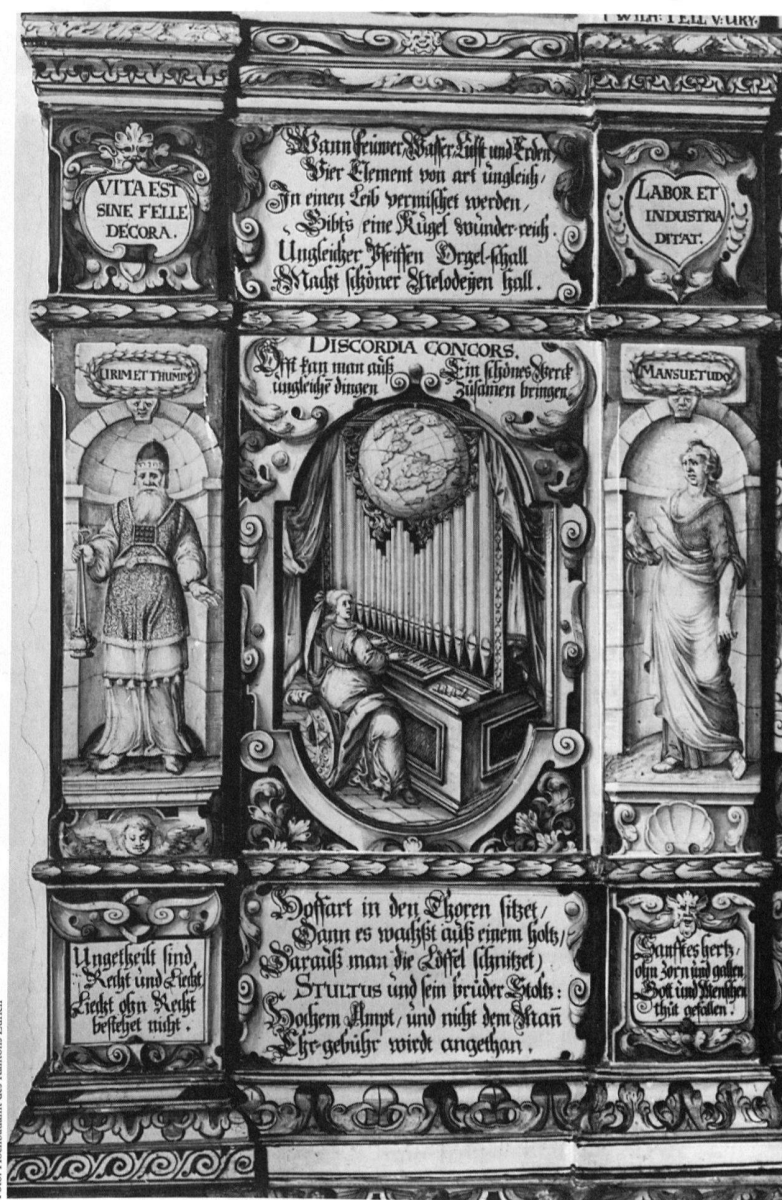 WILH: TELL V: URY.
VITA EST
SINE FELLE
DECORA.
Wann feüwer, Wasser, Lufft und Erden,
Vier Element von art ungleich,
In einen Leib vermischet werden,
Gibts eine Kugel wunder-reich.
Ungleicher Pfeiffen Orgel-schall
Macht schöner Melodeyen hall.
LABOR ET
INDUSTRIA
DITAT.
URIM ET THUMĪM
DISCORDIA CONCORS.
Offt kan man auß
ungleichē dingen
Ein schönes Werck
zusamen bringen.
MANSUETUDO
Ungetheilt sind,
Recht und Liecht,
Liecht ohn Recht
bestehet nicht.
Hoffart in den Thoren sitzet,
Dann es wachßt auß einem holtz,
Darauß man die Löffel schnitzet,
STULTUS und sein brüder Stoltz:
Hochem Ampt, und nicht dem Mañ
Ehr-gebühr wirdt angethan.
Sanfftes hertz,
ohn zorn und gallen,
Gott und Menschen
thüt gefallen.